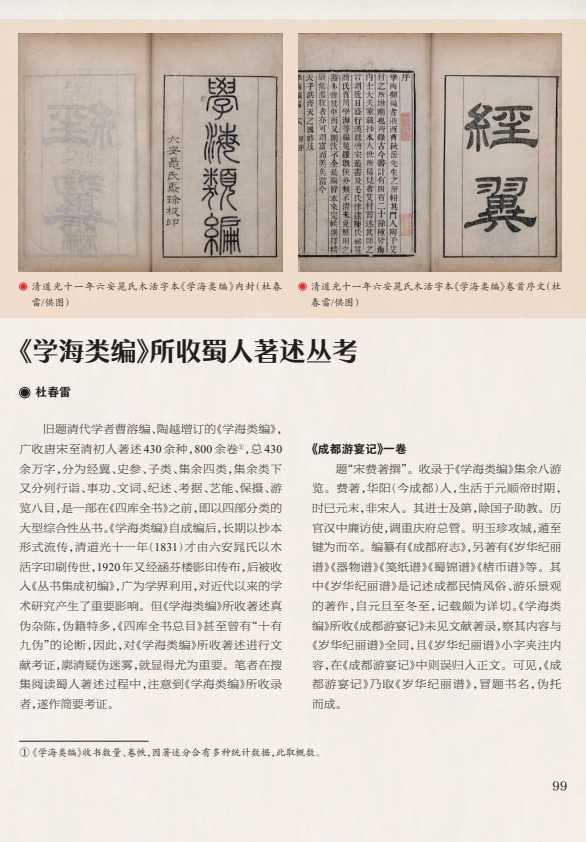 學海類編
六安晁氏聚珍板印
序
經翼
清道光十一年六安晁氏木活字本《学海类编》内封(杜春
雷/供图)
清道光十一年六安晁氏木活字本《学海类编》卷首序文(杜
春雷/供图)
《学海类编》所收蜀人著述丛考
杜春雷
旧题清代学者曹溶编、陶越增订的《学海类编》,
广收唐宋至清初人著述430余种,800余卷①,总430
余万字,分为经翼、史参、子类、集余四类,集余类下
又分列行诣、事功、文词、纪述、考据、艺能、保摄、游
览八目,是一部在《四库全书》之前,即以四部分类的
大型综合性丛书。《学海类编》自成编后,长期以抄本
形式流传,清道光十一年(1831)才由六安晁氏以木
活字印刷传世,1920年又经涵芬楼影印传布,后被收
入《丛书集成初编》,广为学界利用,对近代以来的学
术研究产生了重要影响。但《学海类编》所收著述真
伪杂陈,伪籍特多,《四库全书总目》甚至曾有“十有
九伪”的论断,因此,对《学海类编》所收著述进行文
献考证,廓清疑伪迷雾,就显得尤为重要。笔者在搜
集阅读蜀人著述过程中,注意到《学海类编》所收录
者,遂作简要考证。
《成都游宴记》一卷
题“宋费著撰”。收录于《学海类编》集余八游
览。费著,华阳(今成都)人,生活于元顺帝时期,
时已元末,非宋人。其进士及第,除国子助教。历
官汉中廉访使,调重庆府总管。明玉珍攻城,遁至
犍为而卒。编纂有《成都府志》,另著有《岁华纪丽
谱》《器物谱》《笺纸谱》《蜀锦谱》《楮币谱》等。其
中《岁华纪丽谱》是记述成都民情风俗、游乐景观
的著作,自元旦至冬至,记载颇为详切。《学海类
编》所收《成都游宴记》未见文献著录,察其内容与
《岁华纪丽谱》全同,且《岁华纪丽谱》小字夹注内
容,在《成都游宴记》中则误归入正文。可见,《成
都游宴记》乃取《岁华纪丽谱》,冒题书名,伪托
而成。
①《学海类编》收书数量、卷帙,因著述分合有多种统计数据,此取概数。
99